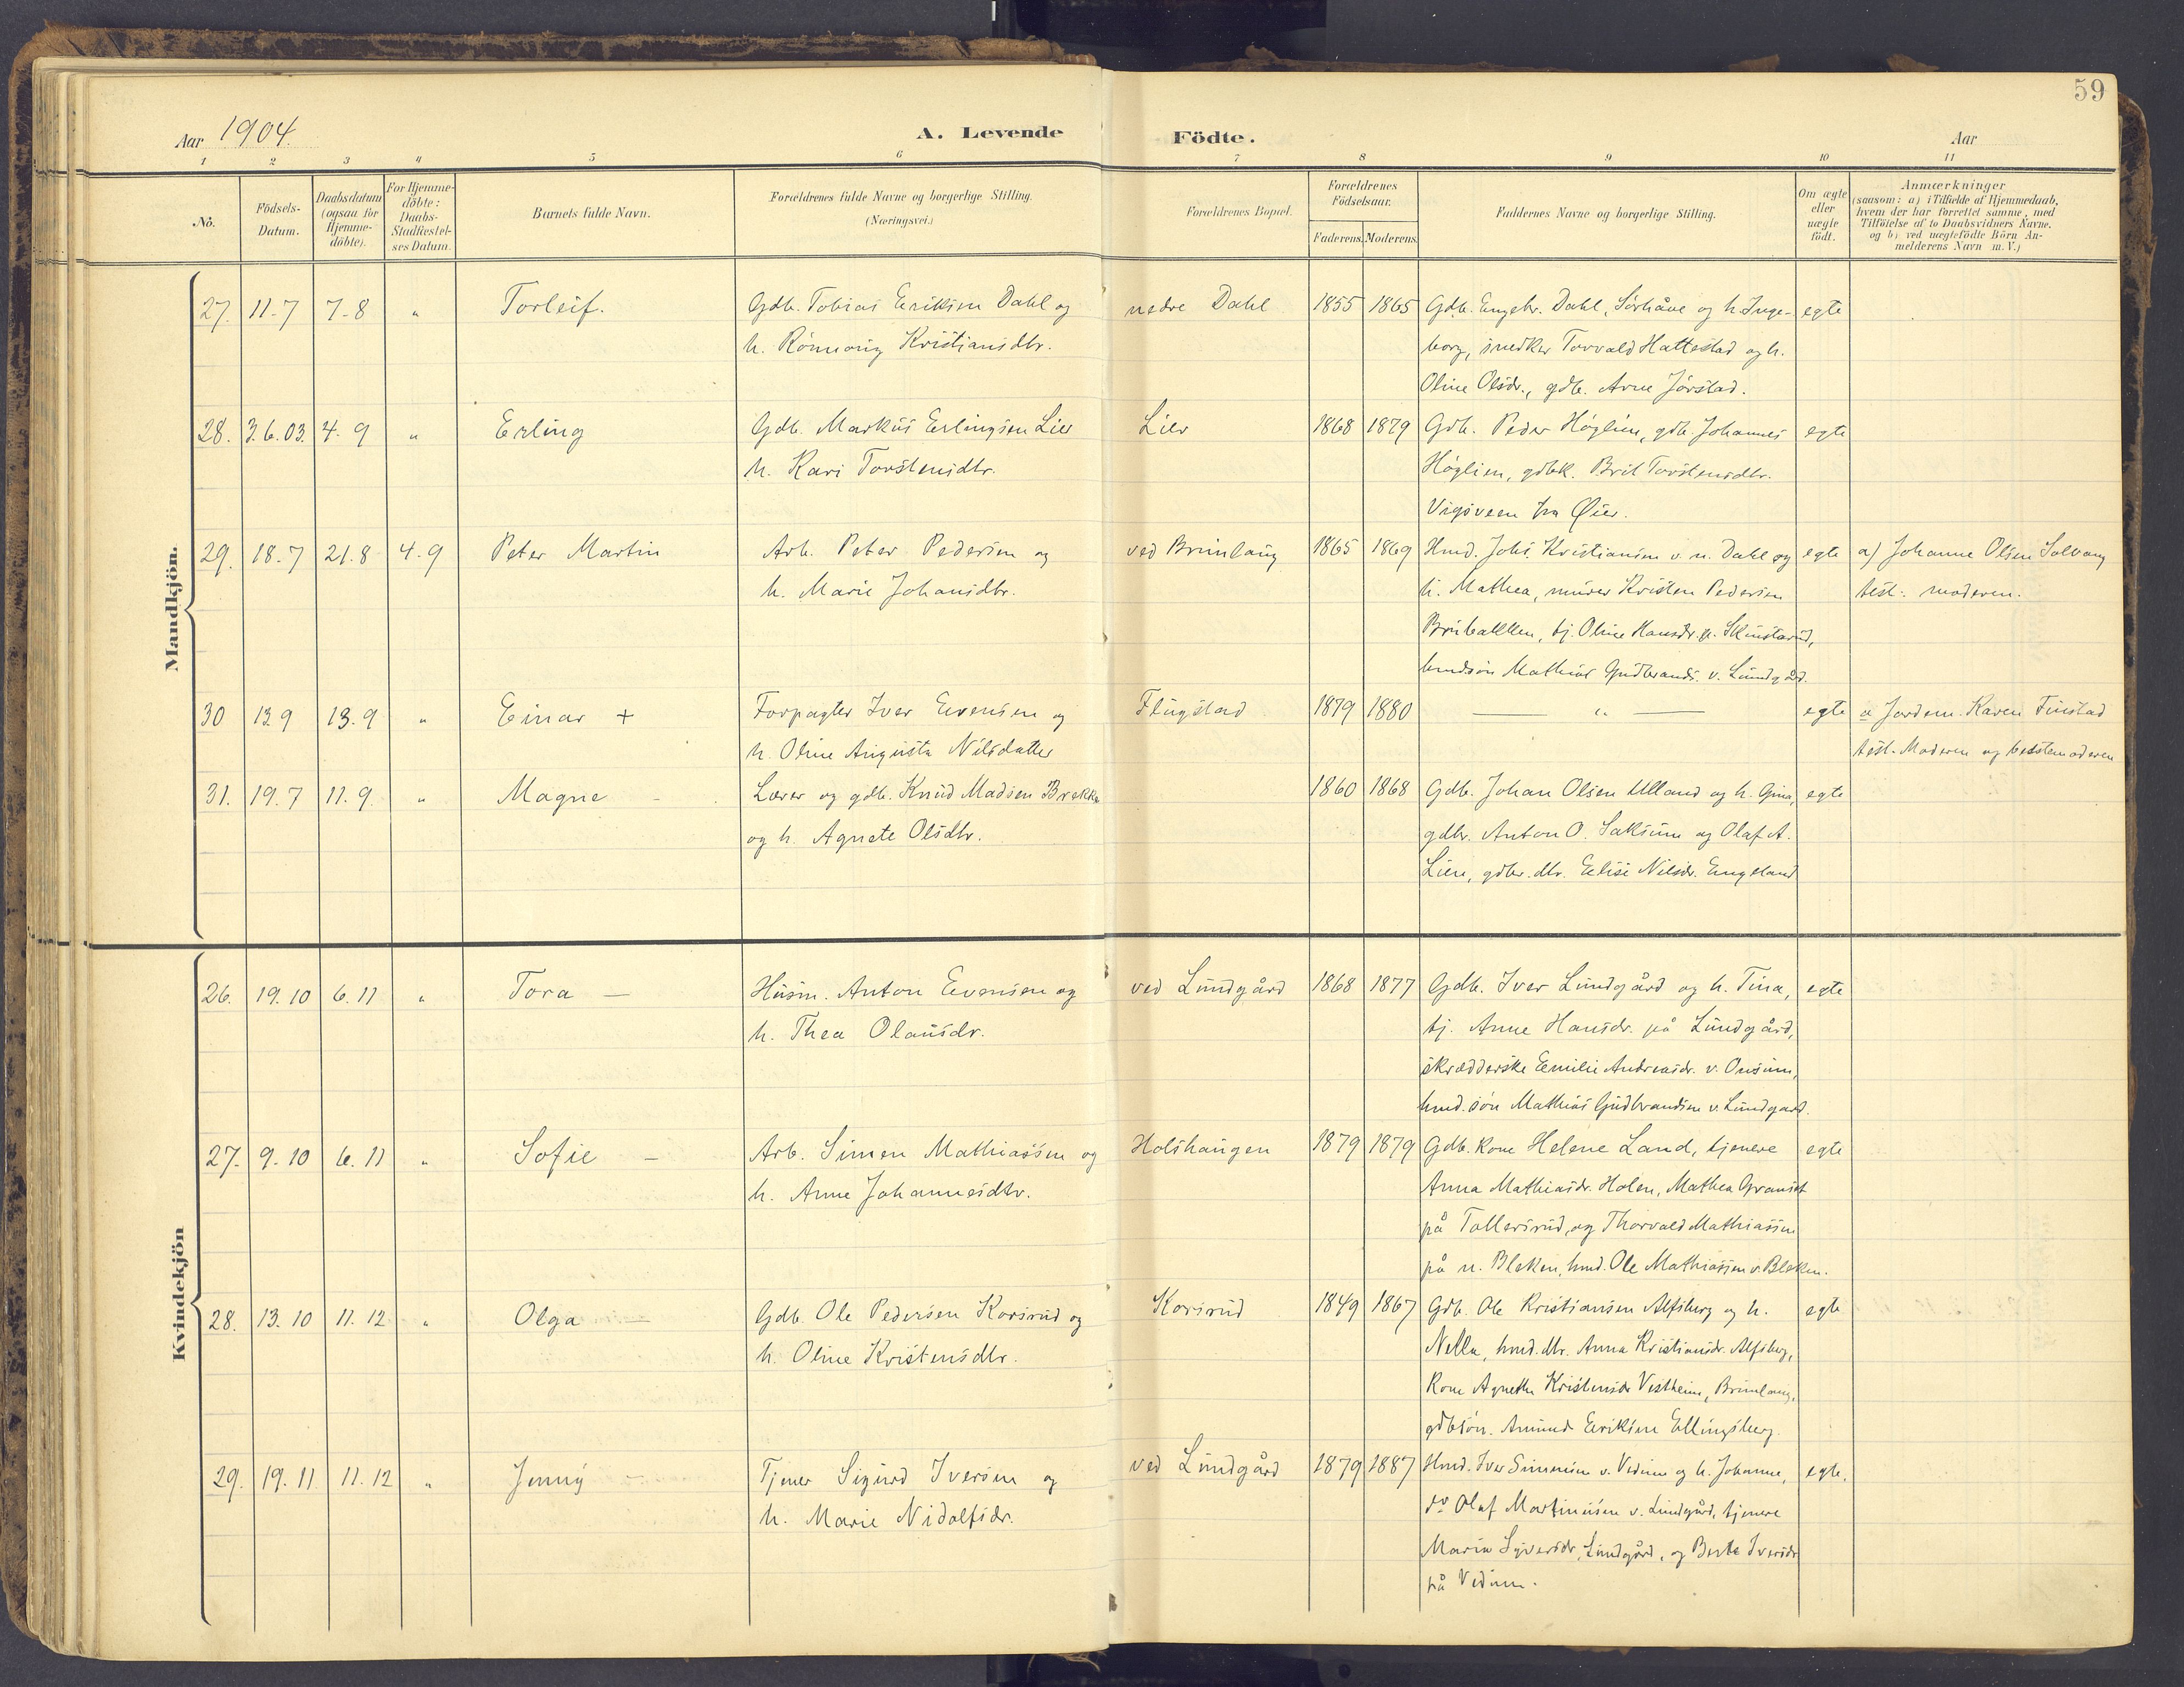 59
Aar 1904. A. Levende Födte. Aar
1 2 3 4 5 6 7 8 9 10 11
No. Födsels-Datum. Daabsdatum (ogsaa for Hjemme-döbte). For Hjemme-döbte: Daabs-Stadfæstel-ses Datum. Barnets fulde Navn. Forældrenes fulde Navne og borgerlige Stilling. (Næringsvei.) Forældrenes Bopæl. Forældrenes Födselsaar. Faderens. Moderens. Faddernes Navne og borgerlige Stilling. Om ægte eller uægte födt. Anmærkninger (saasom: a) i Tilfælde af Hjemmedaab, hvem der har forrettet samme, med Tilföielse af to Daabsvidners Navne. og b) ved uægtefödte Börn An-melderens Navn m.V.)
Mandkjön.
27. 11-7 7-8 " Torleif. Gdb. Tobias Eriksen Dahl og nedre Dahl 1855 1865 Gdb. Engebr. Dahl, Sörhåve og h. Inge- egte
h. Rönnaug Kristiansdtr. borg, snedker Torvald Hattestad og h.
Oline Olsdr., gdb. Arne Jörstad.
28. 3.6.03. 4.9 " Erling Gdb. Markus Erlingsen Lier Lier 1868 1879 Gdb. Peder Höglien, gdb. Johannes egte
h. Kari Torstensdtr. Höglien, gdbk. Brit Torstensdtr.
Vigsveen fra Øier.
29. 18.7 21.8 4.9 Peter Martin Arb. Peter Pedersen og ved Brunlaug 1865 1869 Hmd. Johs. Kristiansen v. n. Dahl og egte a) Johanne Olsen Solvang
h. Marie Johansdtr. h. Mathea, murer Kristen Pedersen test: moderen.
Brubakken, tj. Oline Hansdr. p. Skinstarud,
hmdsön Mathias Gudbrands. v. Lundgård.
30 13.9 13.9 " Einar + Forpagter Iver Evensen og Flugstad 1879 1880 — " — egte a Jordem. Karen Finstad
h. Oline Augusta Nilsdatter test. Moderen og bedstemoderen
31. 19.7 11.9. " Magne - Lærer og gdb. Knud Madsen Brekke 1860 1868 Gdb. Johan Olsen Ulland og h. Gina, egte
og h. Agnete Olsdtr. gdbr. Anton O. Saksum og Olaf A.
Lien, gdbr. dtr. Elise Nilsdr. Engeland
Kvindekjön
26. 19.10 6.11 " Tora — Husm. Anton Evensen og ved Lundgård 1868 1877 Gdb. Iver Lundgård og h. Tina, egte
h. Thea Olausdr. tj. Anne Hansdr. på Lundgård,
skrædderske Emilie Andreasdr. v. Onsum,
hmd. sön Mathias Gudbrandsen v. Lundgard.
27. 9.10 6.11 " Sofie — Arb. Simen Mathiassen og Holshaugen 1879 1879 Gdb. kone Helene Land, tjenere egte
h. Anne Johannesdtr. Anna Mathiasdr. Holen, Mathea
på Tollersrud, og Thorvald Mathiassen
på n. Bleken, hmd. Ole Mathiassen v. Bleken.
28. 13.10 11.12 " Olga — Gdb. Ole Pedersen Korsrud og Korsrud 1849 1867 Gdb. Ole Kristiansen Alfsberg og h. egte
h. Oline Kristensdtr. Nella, hmd. dtr. Anna Kristiansdr. Alfsberg,
kone Agnethe Kristensdr Vestheim, Brunlaug,
gdbsön. Amund Eriksen Ellingsberg.
29. 19.11 11.12 " Jenny - Tjener Sigurd Iversen og ved Lundgård 1879 1887 Hmd. Iver Simensen v. Vedum og h. Johanne, egte.
h. Marie Nidolfsdr. do Olaf Martinusen v. Lundgård, tjenere
Marie Syversdr, Lundgård, og Berte Iversdr
på Vedum.